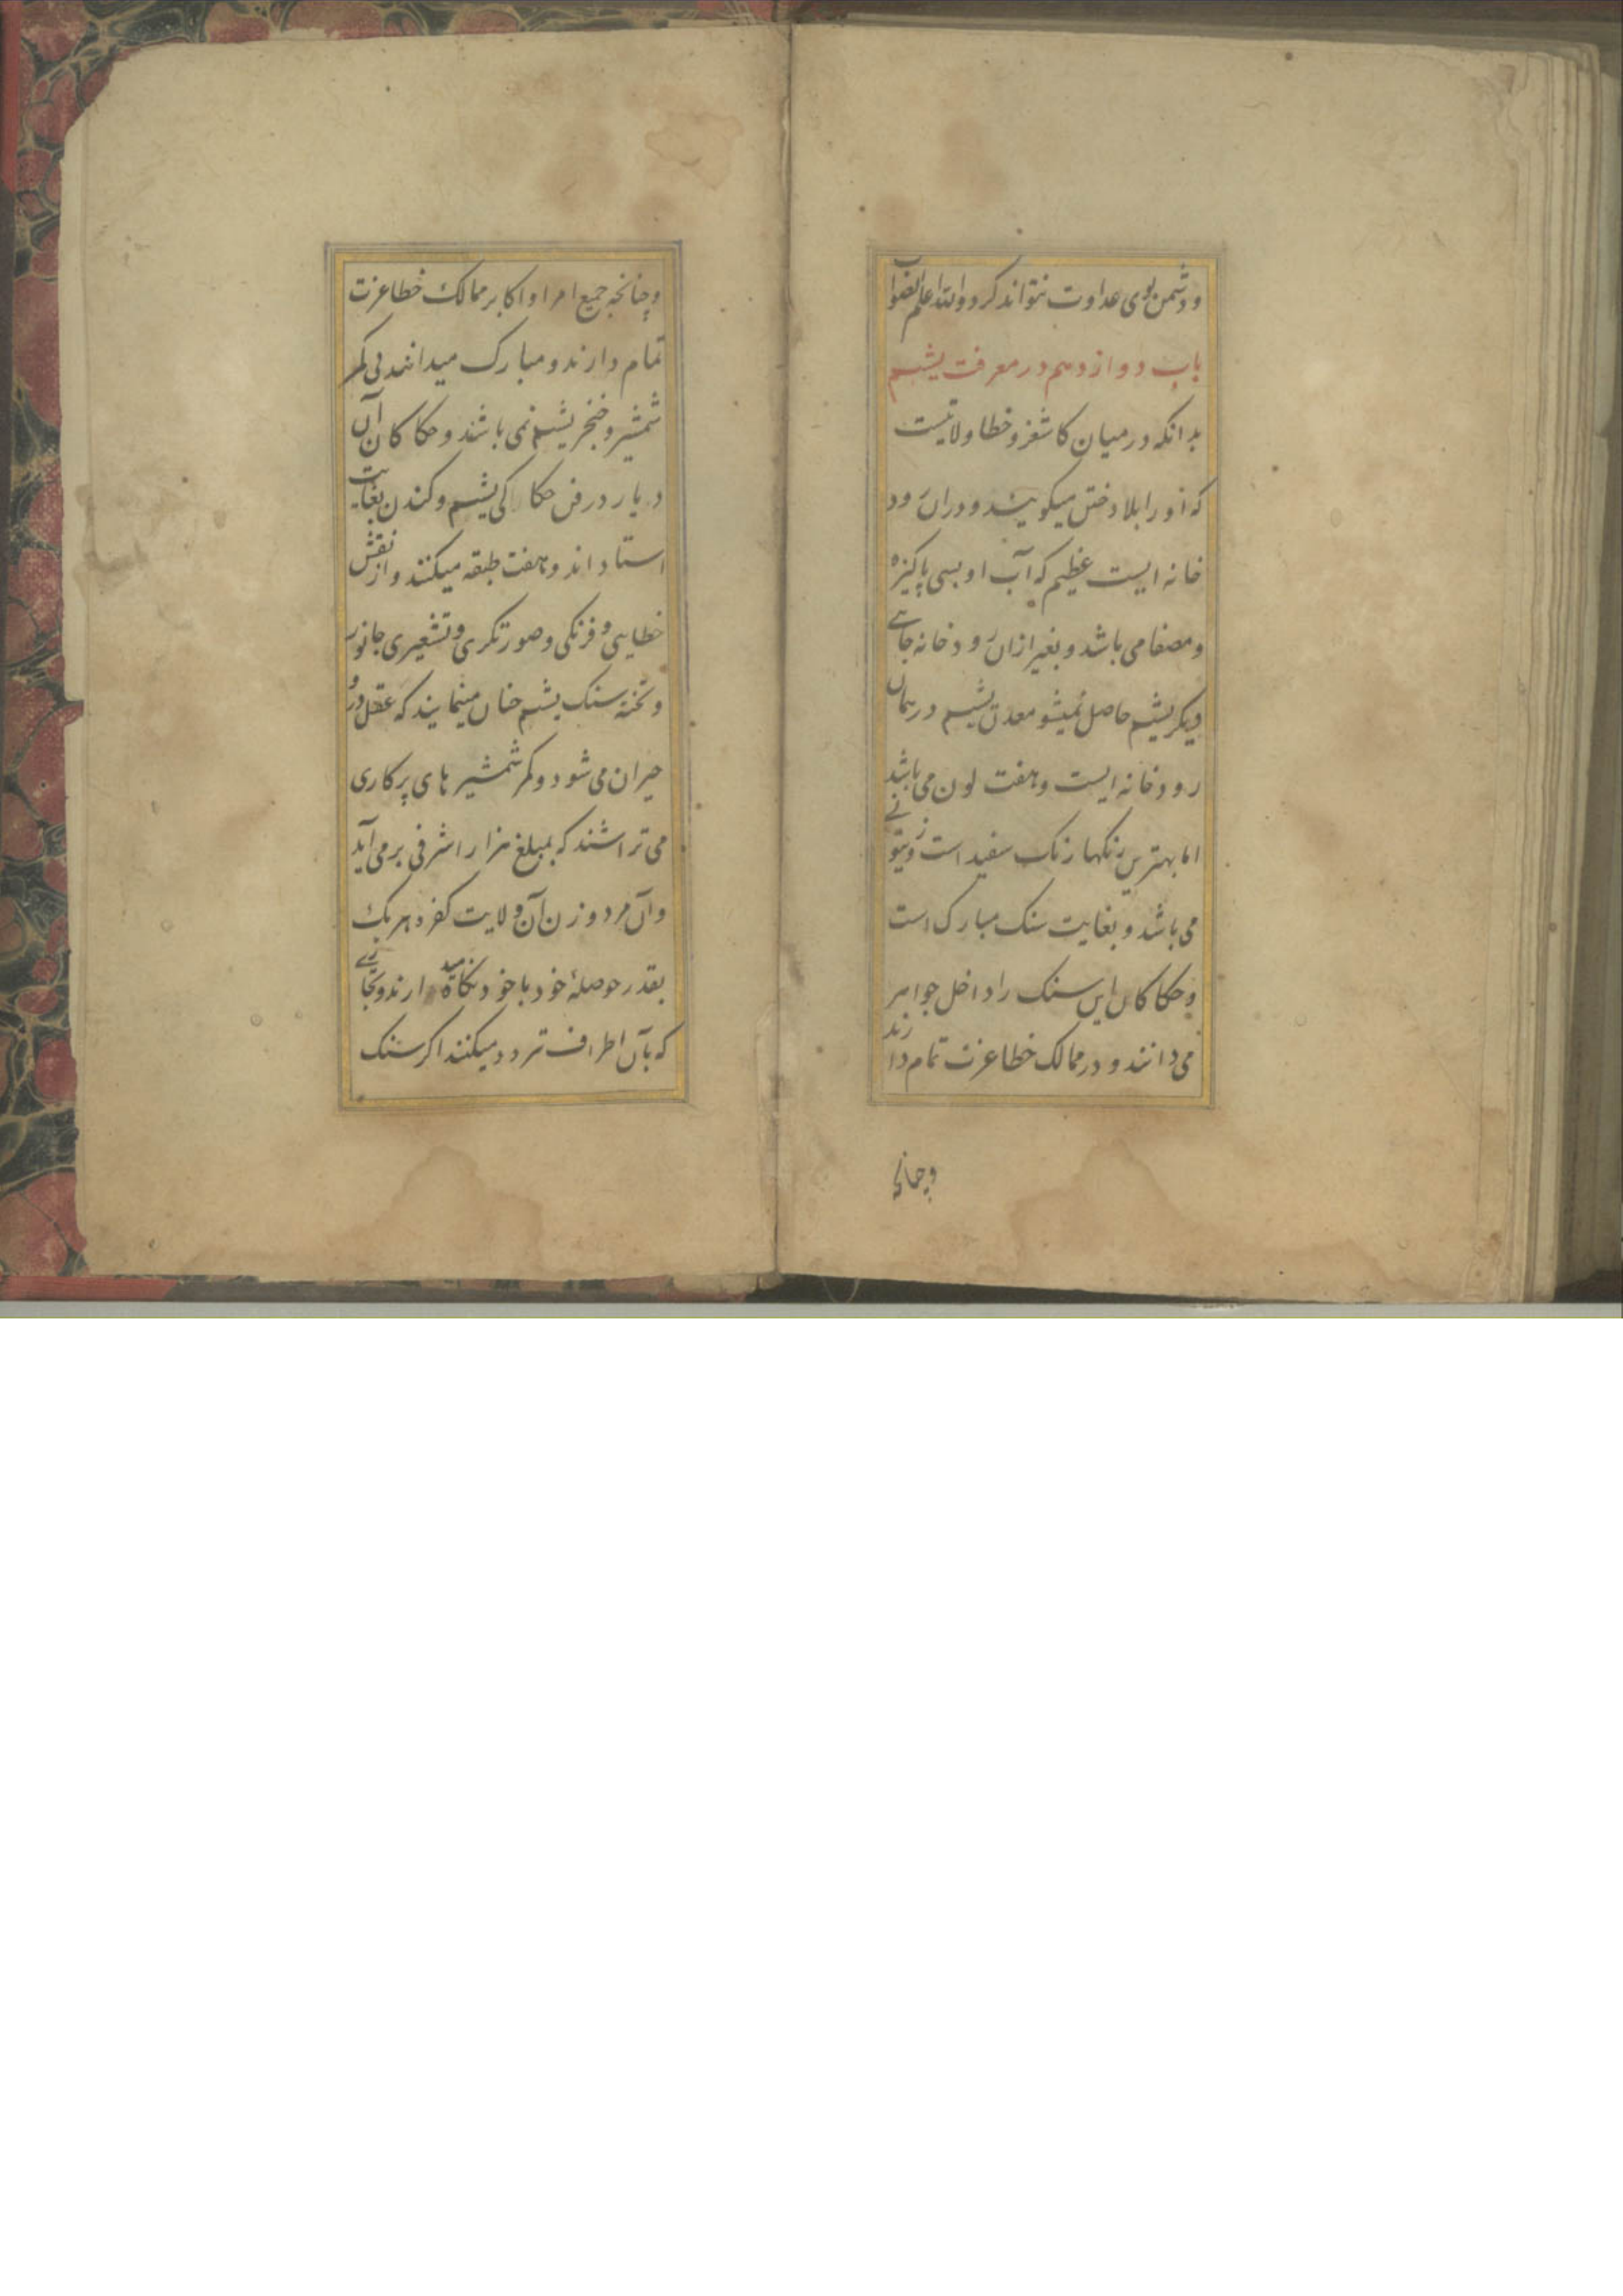 و دشمن بوی عداوت نتواند کرد والله اعلم بالصواب
باب دوازدهم در معرفت یشم
بدانکه در میان کاشغر و خطا ولایتست
که او را بلاد ختن میکویند و دران رود
خانه ایست عظیم که آب او بسی پاکیزه
و مصفا می باشد و بغیر ازان رود خانه جائے
دیکر یشم حاصل نمیشو معدن یشم در همان
رودخانه ایست و هفت لون می باشد
اما بهترین رنکها رنک سفید است و زیتونے
می باشد و بغایت سنک مبارک است
و حکاکان این سنک را داخل جواهر
می دانند و در ممالک خطا عزت تمام دارند
وچنانچه
وچنانچه جمیع امرا و اکابر ممالک خطا عزت
تمام دارند و مبارک میدانند بی کمر
شمشیر و خنجر یشم نمی باشند و حکاکان آن
دیار در فن حکاکی یشم و کندن بغایت
استاد اند و هفت طبقه میکنند و از نقش
خطایی و فرنکی و صورتکری و تشعیری جانور
و تخته سنک یشم چنان مینمایند که عقل درو
حیران می شود و کمر شمشیر های پرکاری
می تراشند که بمبلغ هزار اشرفی بر می آید
و آن مرد و زن آن ولایت کفر و هر یک
بقدر حوصلهٔ خود با خود نکاه میدارند و تجارے
که بآن اطراف تردد میکنند اکر سنک